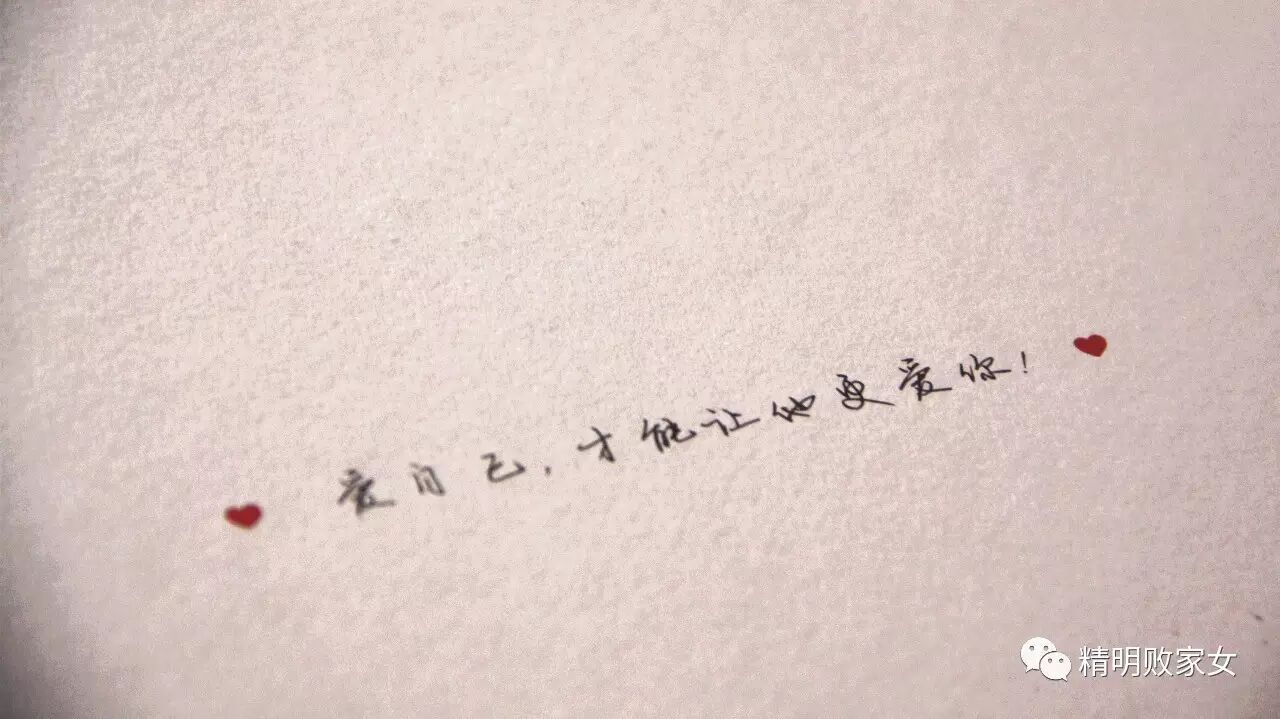 爱自己，才能让他更爱你！
精明败家女